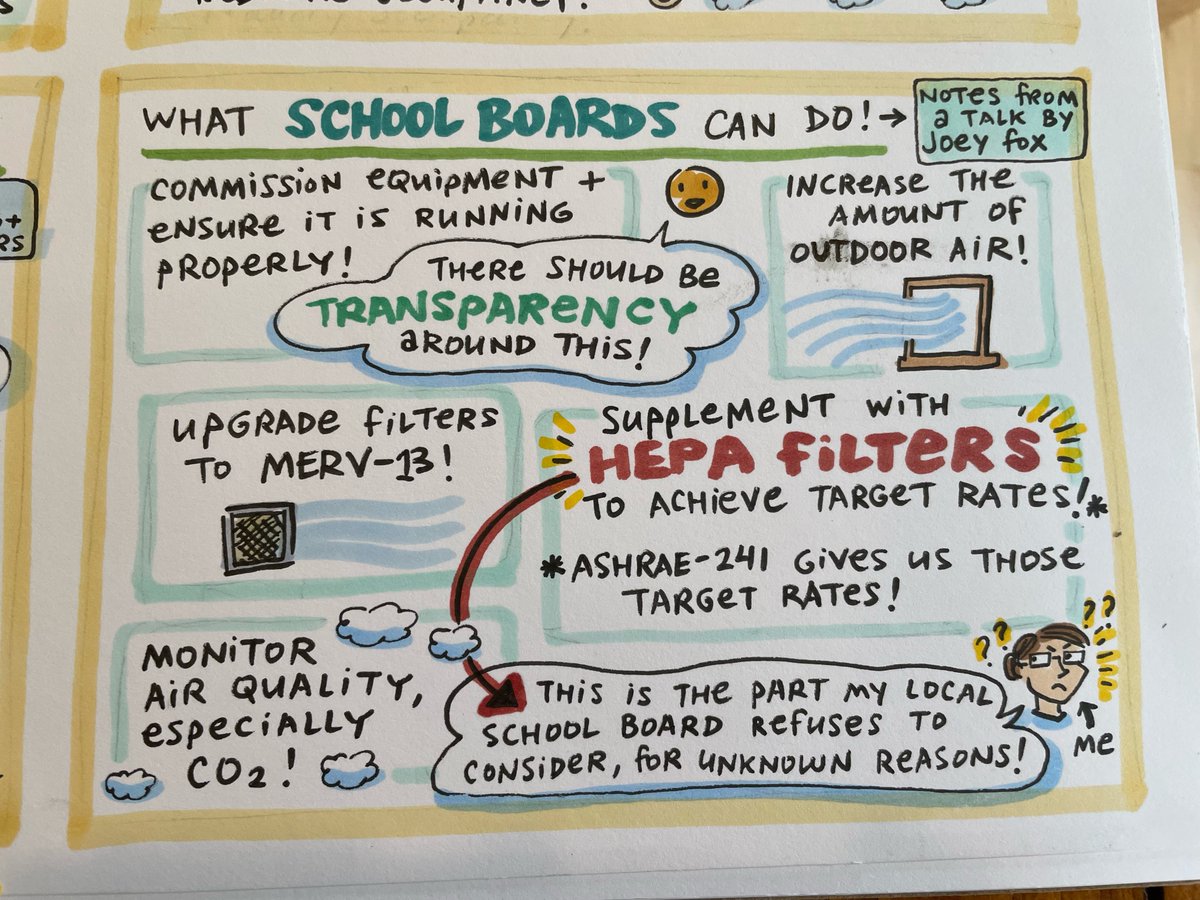 WHAT SCHOOL BOARDS CAN DO! →
NOTES from
a TALK BY
Joey fox
COMMISSION EQUIPMENT +
ENSURE IT IS RUNNING
PROPERLY!
THERE SHOULD BE
TRANSPARENCY
AROUND THIS!
INCREASE THE
AMOUNT OF
OUTDOOR AIR!
UPGRADE FILTERS
TO MERV-13!
SUPPLEMENT WITH
HEPA FILTERS
TO ACHIEVE TARGET RATES!*
*ASHRAE-241 GIVES US THOSE
TARGET RATES!
MONITOR
AIR QUALITY,
ESPECIALLY
CO2!
THIS IS THE PART MY LOCAL
SCHOOL BOARD REFUSES TO
CONSIDER, FOR UNKNOWN REASONS!
? ? ? ?
ME